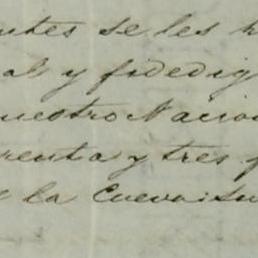 ntes se les h
al y fidedig
uestro Nacio
renta y tres f
e la Cueva: Su